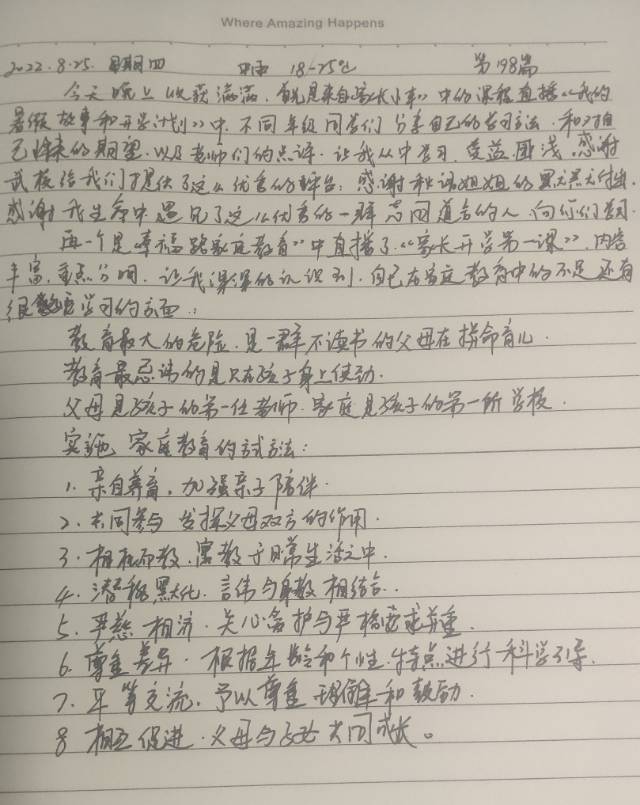 Where Amazing Happens
2022.8.25. 星期四 中雨 18-25℃ 第198篇
今天晚上收获满满,首先是来自"家长小事"中的课程直播《我的
暑假故事和开学计划》中,不同年级同学们分享自己的学习方法,和对自
己将来的期望,以及老师们的点评,让我从中学习,受益匪浅,感谢
武校给我们提供了这么优秀的平台;感谢秋调姐姐的默默付出,
感谢我生命中遇见了这么优秀的一群志同道合的人,向你们学习.
再一个是幸福路家庭教育"中直播了《家长开学第一课》,内容
丰富,重点分明,让我深深的认识到,自己在家庭教育中的不足还有
很多学习的方面:
教育最大的危险,是一群不读书的父母在拼命育儿.
教育最忌讳的是只在孩子身上使劲.
父母是孩子的第一任老师,家庭是孩子的第一所学校.
实施家庭教育的方法:
1. 亲自养育,加强亲子陪伴.
2. 共同参与 发挥父母双方的作用.
3. 相机而教,寓教于日常生活之中.
4. 潜移默化,言传与身教相结合.
5. 严慈相济,关心爱护与严格要求并重.
6. 尊重差异,根据年龄和个性特点进行科学引导.
7. 平等交流,予以尊重理解和鼓励.
8 相互促进,父母与子女共同成长。